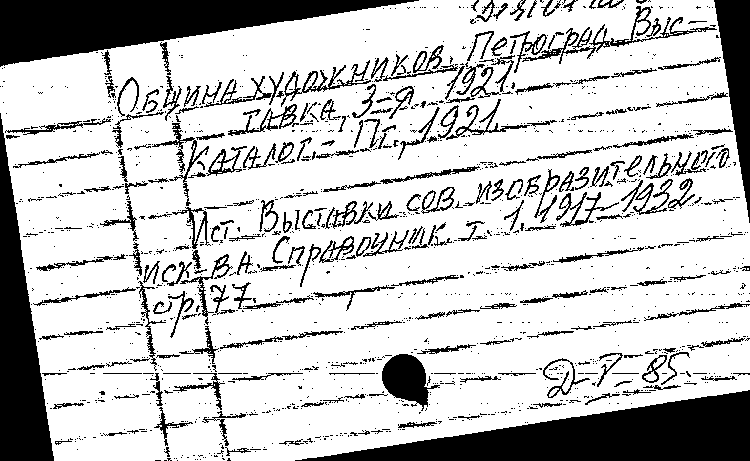 Община художников. Петроград. Выс-
тавка, 3-я. 1921.
Каталог. - Пг., 1921.
Ист. Выставки сов. изобразительного
иск-ва. Справочник т. 1. 1917-1932.
стр. 77.
Д-Р-85.